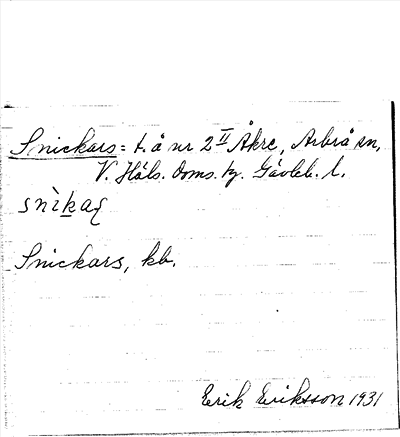 Snickars = t. å nr 2 II Åkre, Arbrå sn,
V. Häls. doms. tg. Gävleb. l.
snìka
Snickars, kb.
Erik Eriksson 1931